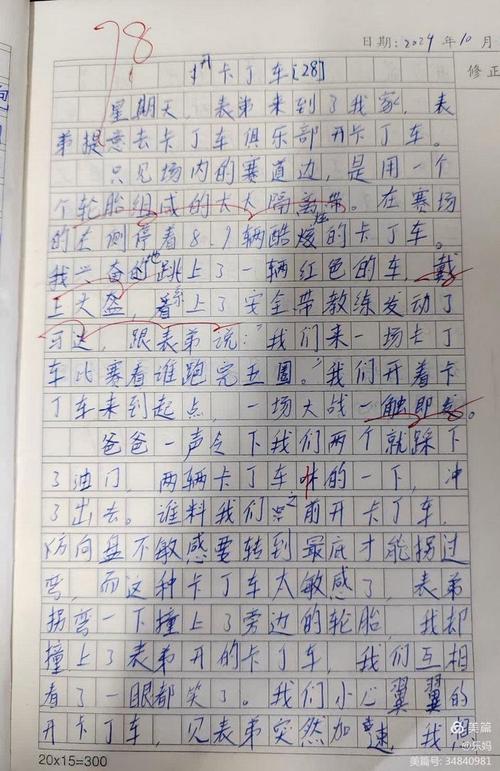 78
日期：2024年10月
修正
开卡丁车[28]
星期天，表弟来到了我家，表
弟提意去卡丁车俱乐部开卡丁车。
只见场内的赛道边，是用一个
个轮胎组成的大大隔离带。在赛场
的左侧停着8.9辆酷炫的卡丁车。
我兴奋的地跳上了一辆红色的车，戴
上大盔，系上了安全带教练发动了
马达，跟表弟说：“我们来一场卡丁
车比赛看谁跑完五圈。”我们开着卡
丁车来到起点，一场大战一触即发。
爸爸一声令下我们两个就踩下
了油门，两辆卡丁车咻的一下，冲
了出去。谁料我们之前开卡丁车，
方向盘不敏感要转到最底才能拐过
弯，而这种卡丁车太敏感了，表弟
拐弯一下撞上了旁边的轮胎，我却
撞上了表弟开的卡丁车，我们互相
看了一眼都笑了。我们小心翼翼的
开卡丁车，见表弟突然加速，我
20×15=300
美篇
@乐妈
美篇号：34840981